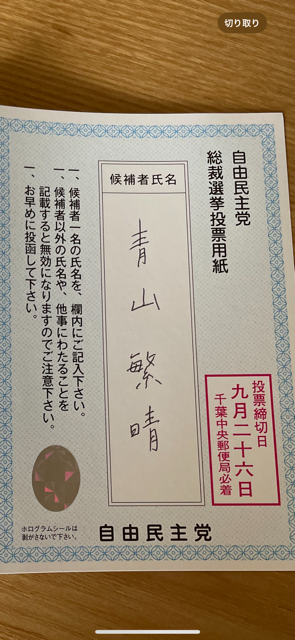 切り取り
自由民主党
総裁選挙投票用紙
投票締切日
九月二十六日
千葉中央郵便局必着
候補者氏名
青山繁晴
一、候補者一名の氏名を、欄内にご記入下さい。
一、候補者以外の氏名や、他事にわたることを
記載すると無効になりますのでご注意下さい。
一、お早めに投函して下さい。
ホログラムシールは
剥がさないで下さい。
自由民主党